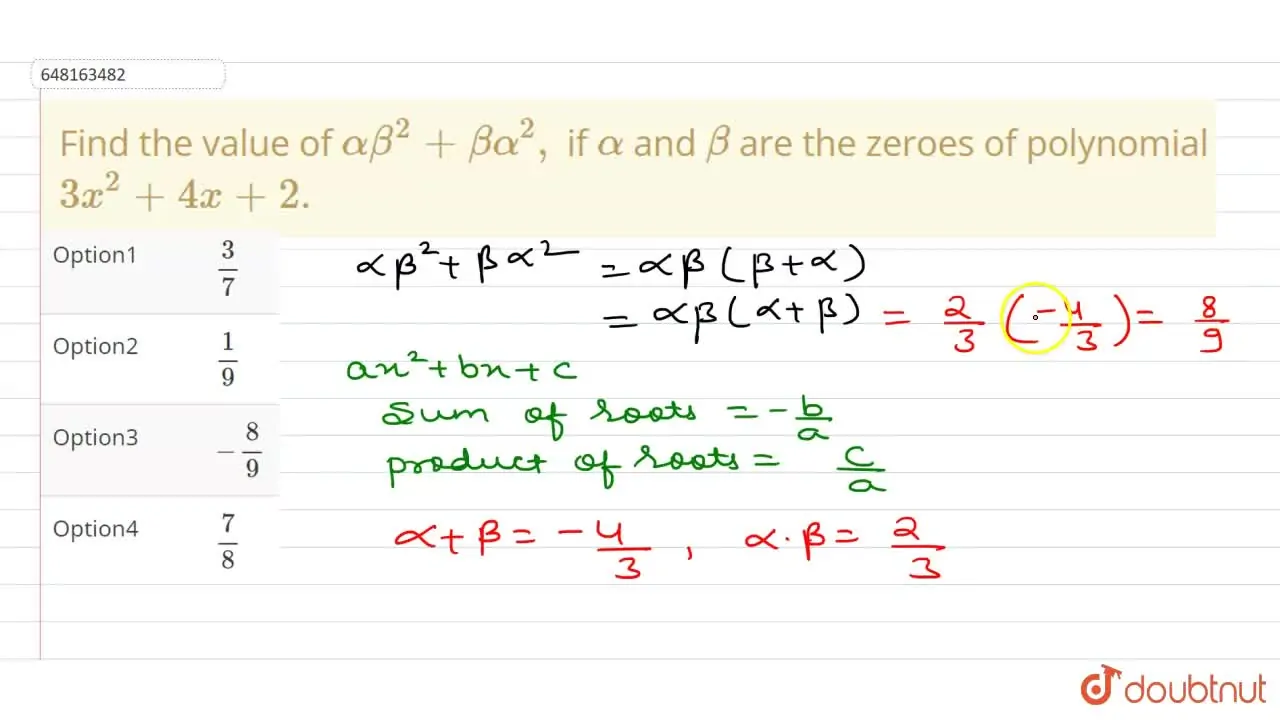 648163482
Find the value of αβ² + βα², if α and β are the zeroes of polynomial
3x² + 4x + 2.
Option1 3/7
Option2 1/9
Option3 -8/9
Option4 7/8
αβ² + βα² = αβ(β+α)
= αβ(α+β) = 2/3 (-4/3) = 8/9
ax² + bx + c
Sum of roots = -b/a
product of roots = c/a
α+β = -4/3, α·β = 2/3
doubtnut